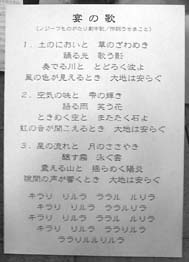 宴の歌
(ノジーフものがたり劇中歌/作詞うさまこと)
1、土のにおいと 草のざわめき
踊る光 歌う影
奏でる川と とどろく波よ
風の色が見えるとき 大地は安らぐ
2、空気の味と 雫の輝き
語る雨 笑う花
ときめく空と またたく石よ
虹の音が聞こえるとき 大地は安らぐ
3、星の流れと 月のささやき
隠す霧 泳ぐ雲
震える山と 揺らめく陽炎
隙間の声が響くとき 大地は安らぐ
キラリ リルラ ララル ルリラ
キラリ リルラ ララルリラ
キラリ リルラ ララル ルリラ
キラリ リルラ ララルリラ
ララリルルリルラ